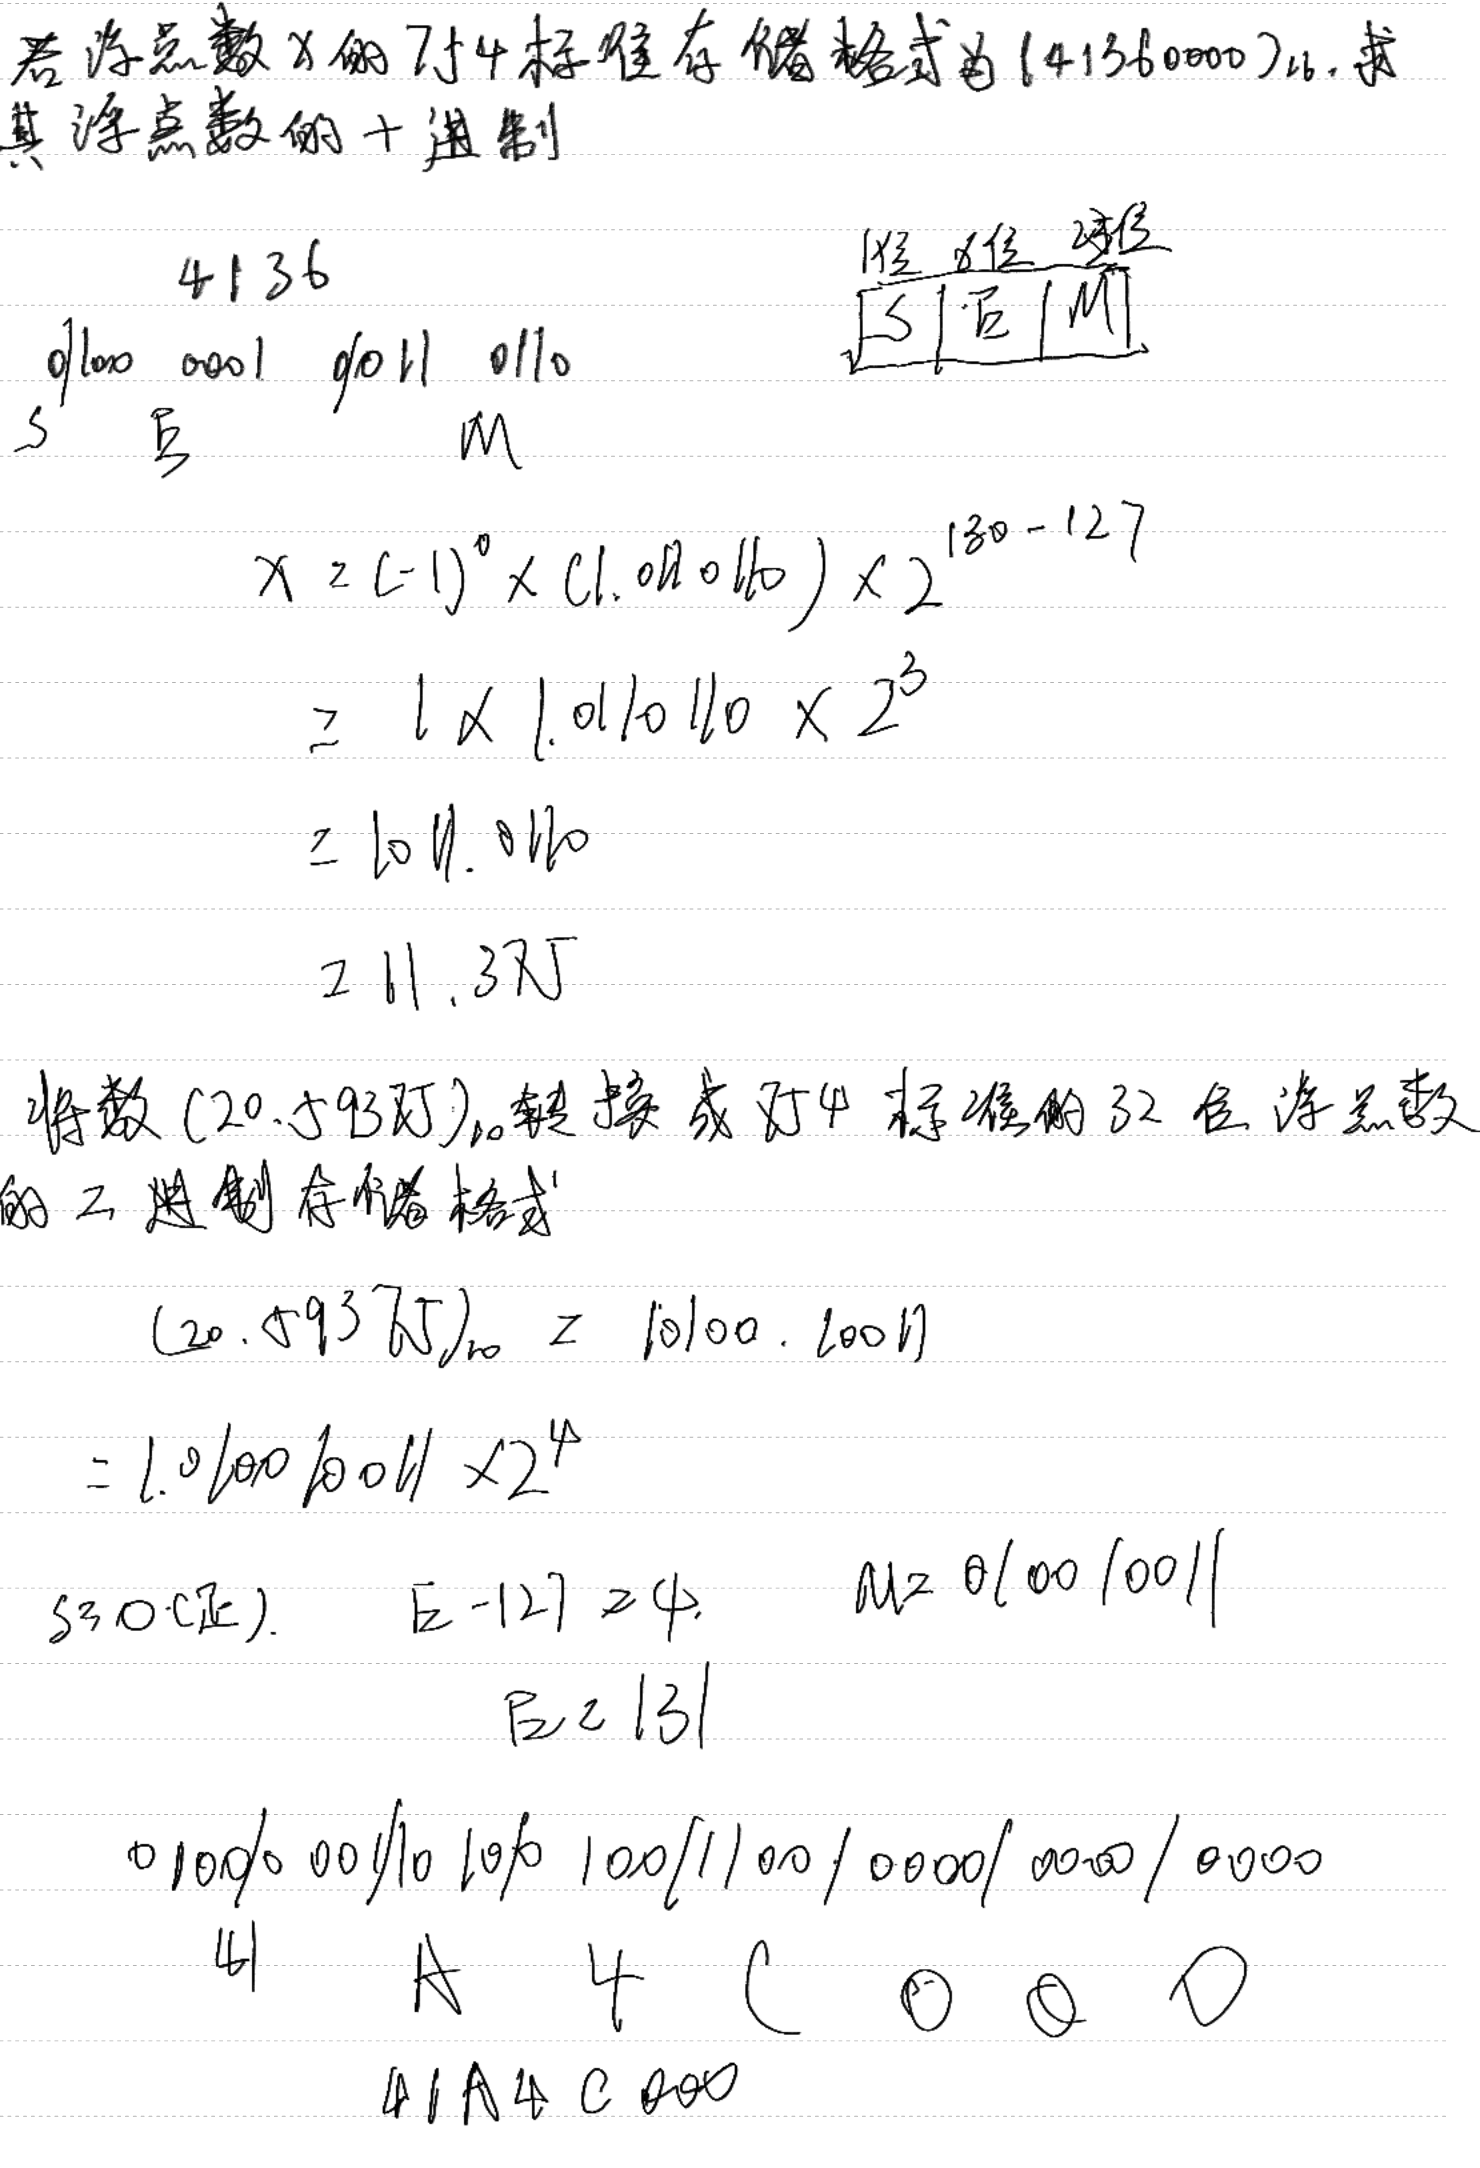 若浮点数x的754标准存储格式为(41360000)16.求
其浮点数的十进制
4136
1位 8位 23位
S E M
0100 0001 0011 0110
S E M
x=(-1)^0×(1.0110110)×2^130-127
= 1×1.0110110×2^3
=1011.0110
=11.375
将数(20.59375)10转换成754标准的32位浮点数
的二进制存储格式
(20.59375)10 = 10100.10011
=1.010010011×2^4
S=0(正). E-127=4. M=010010011
E=131
0100/0001/1010/0100/1100/0000/0000/0000
41 A 4 C 0 0 0
41A4C000